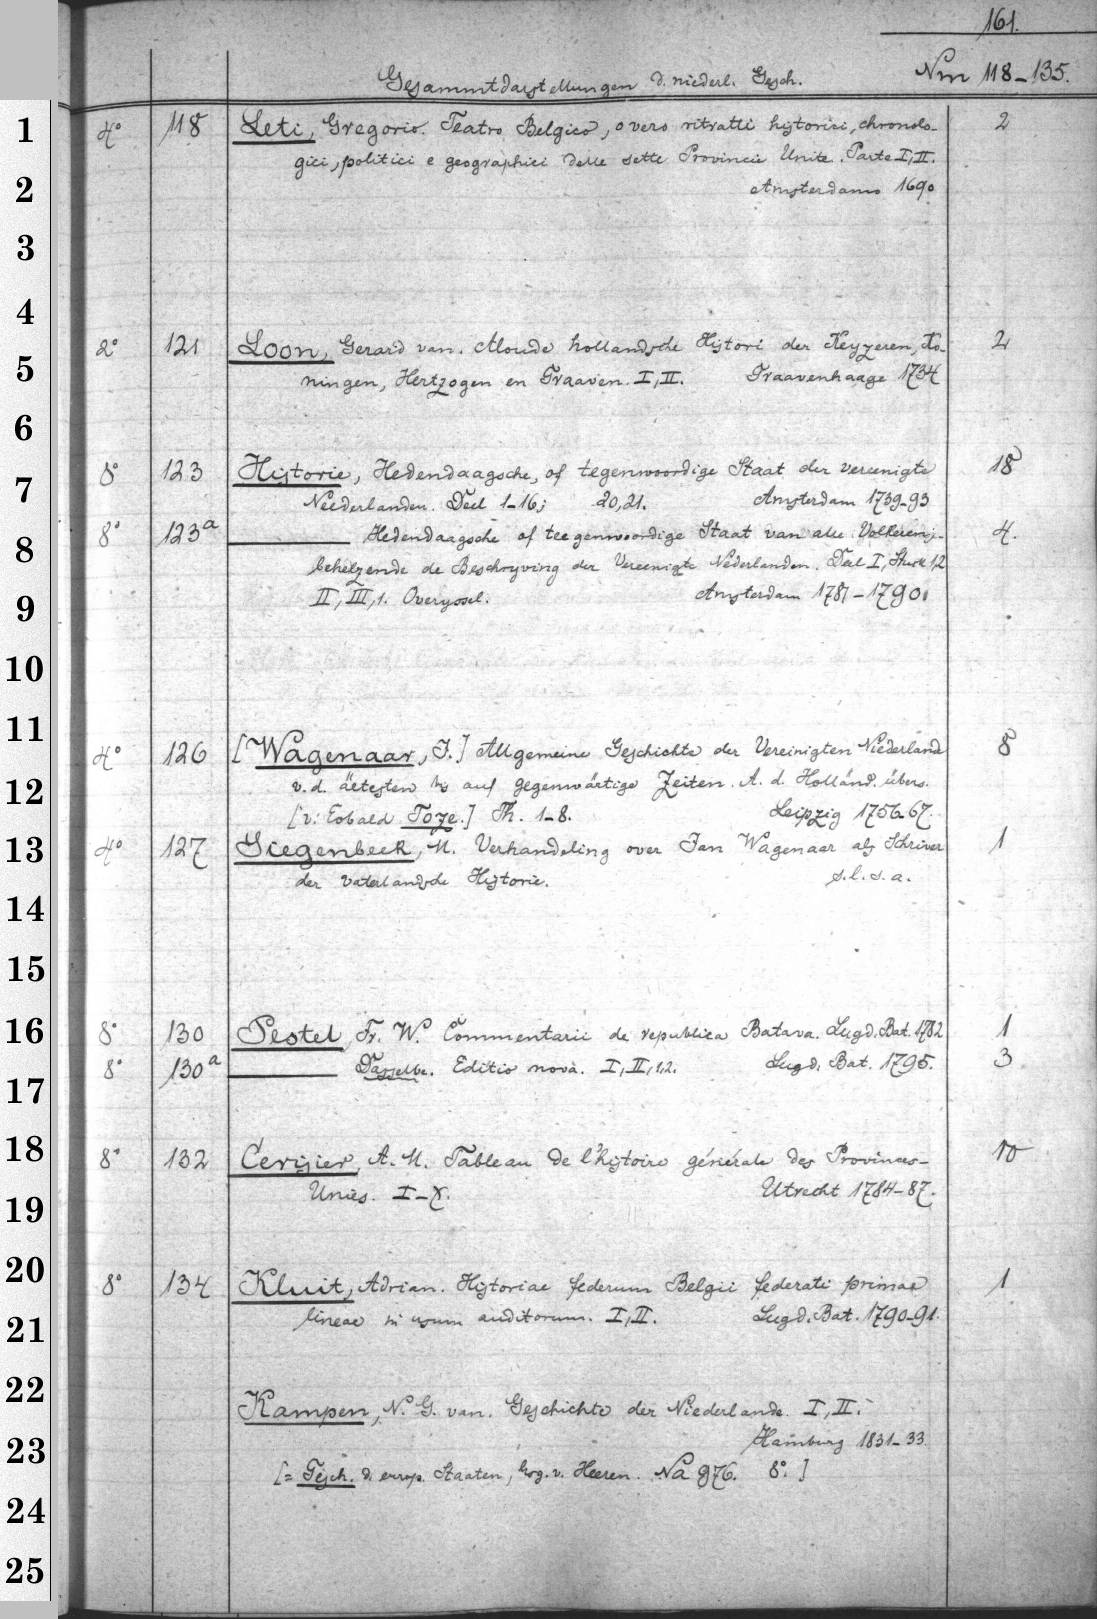 161.
Gesammtdarstellungen d. niederl. Gesch. Nm 118-135.
1
4° 118 Leti, Gregorio. Teatro Belgico, overo ritratti historici, chronolo- 2
gici, politici e geographici delle sette Provincie Unite. Parte I, II.
2
Amsterdamo 1690
3
4
2° 121 Loon, Gerard van. Aloude hollandsche Histori der Keyzeren, Ko- 2
5
ningen, Hertzogen en Graaven. I, II. Graavenhaage 1734
6
8° 123 Historie, Hedendaagsche, of tegenwoordige Staat der vereenigte 18
7
Neederlanden. Deel 1-16; 20, 21. Amsterdam 1739-93
8° 123a Hedendaagsche of teegenwoordige Staat van alle Volkeren; 4.
8
behelzende de Beschryving der Vereenigte Nederlanden. Deel I, Stuck 1,2
9
II, III, 1. Overyssel. Amsterdam 1781-1790.
10
11
4° 126 [Wagenaar, J.] Allgemeine Geschichte der Vereinigten Niederlande 8
12
v. d. äetesten bis auf gegenwärtige Zeiten. A. d. Holländ. übers.
[v. Eobald Toze.] Th. 1-8. Leipzig 1756-67.
13
4° 127 Siegenbeek, M. Verhandeling over Jan Wagenaar als Schriver 1
der vaterlandsche Historie. s. l. s. a.
14
15
16
8° 130 Pestel, Fr. W. Commentarii de republica Batava. Lugd. Bat. 1782 1
8° 130a Dasselbe. Editio nova. I, II, 1.2. Lugd. Bat. 1795. 3
17
18
8° 132 Cerisier, A. M. Tableau de l'histoire générale des Provinces- 10
19
Unies. I-X. Utrecht 1784-87.
20
8° 134 Kluit, Adrian. Historiae federum Belgii federati primae 1
21
lineae in usum auditorum. I, II. Lugd. Bat. 1790-91.
22
Kampen, N. G. van. Geschichte der Niederlande. I, II.
23
Hamburg 1831-33.
[= Gesch. d. europ. Staaten, hrg. v. Heeren. Na 976. 8°.]
24
25